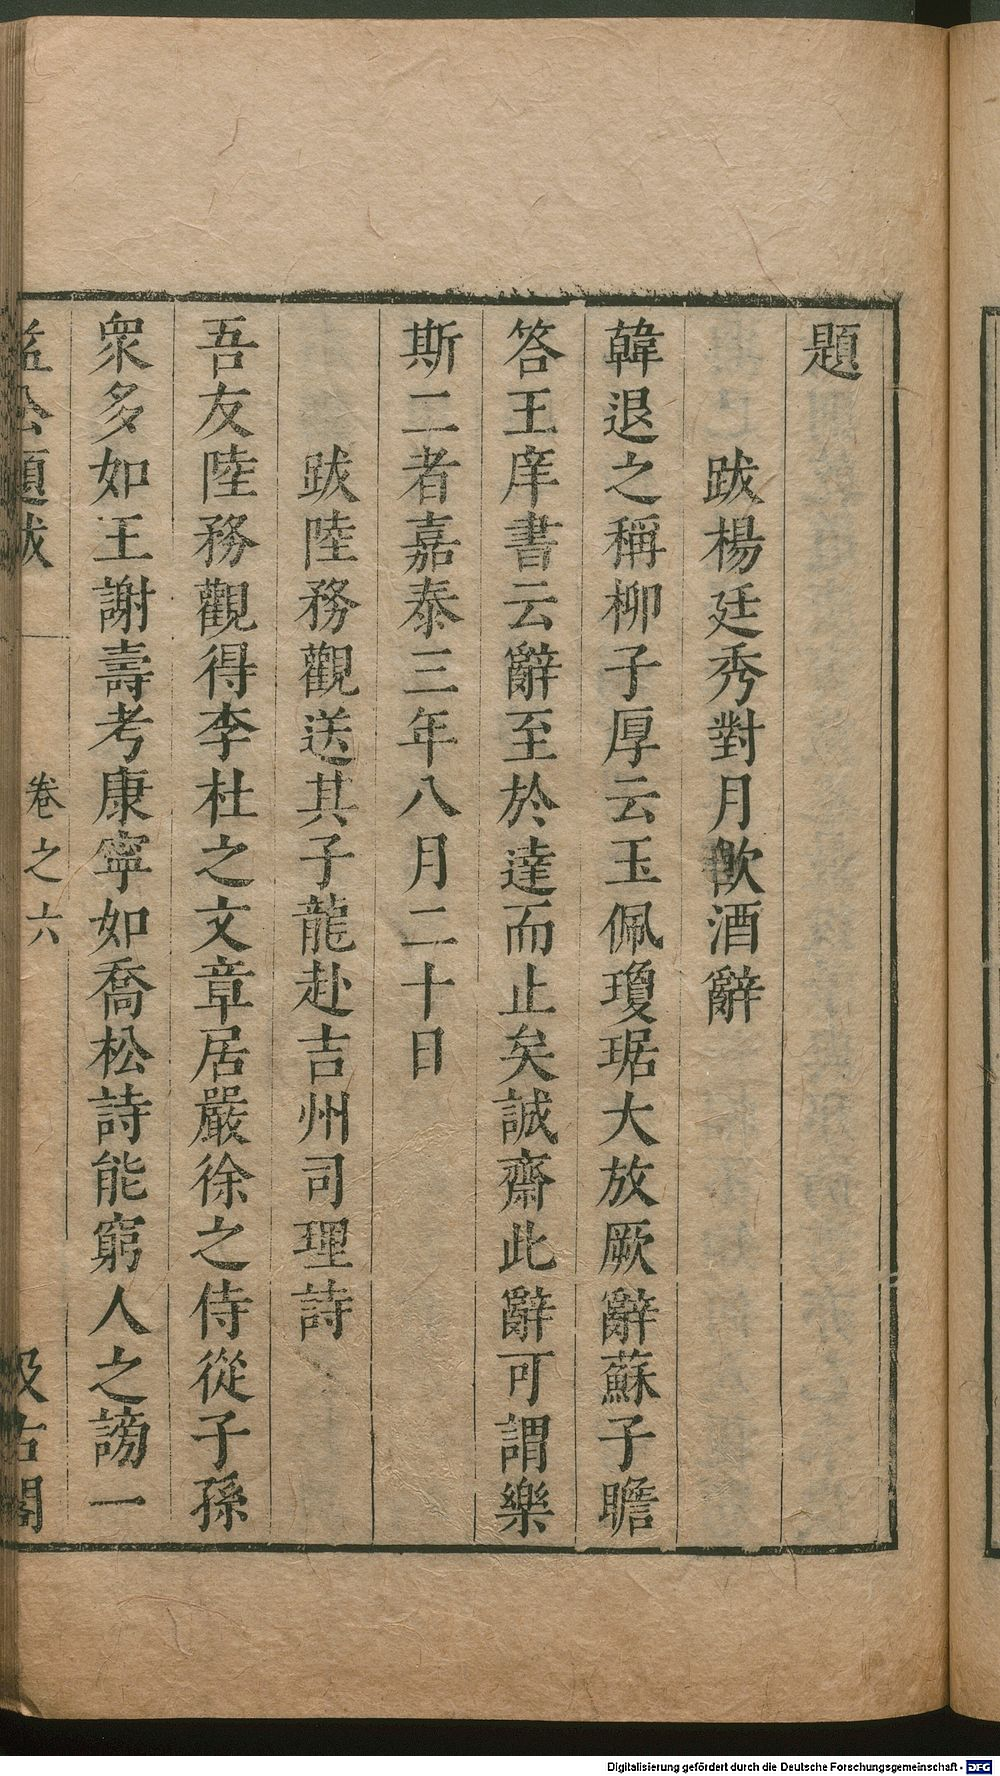 題
跋楊廷秀對月飮酒辭
韓退之稱柳子厚云玉佩瓊琚大放厥辭蘇子瞻
答王庠書云辭至於達而止矣誠齋此辭可謂樂
斯二者嘉泰三年八月二十日
跋陸務觀送其子龍赴吉州司理詩
吾友陸務觀得李杜之文章居嚴徐之侍從子孫
衆多如王謝壽考康寧如喬松詩能窮人之謗一
益公題跋 卷之六 汲古閣
Digitalisierung gefördert durch die Deutsche Forschungsgemeinschaft - DFG